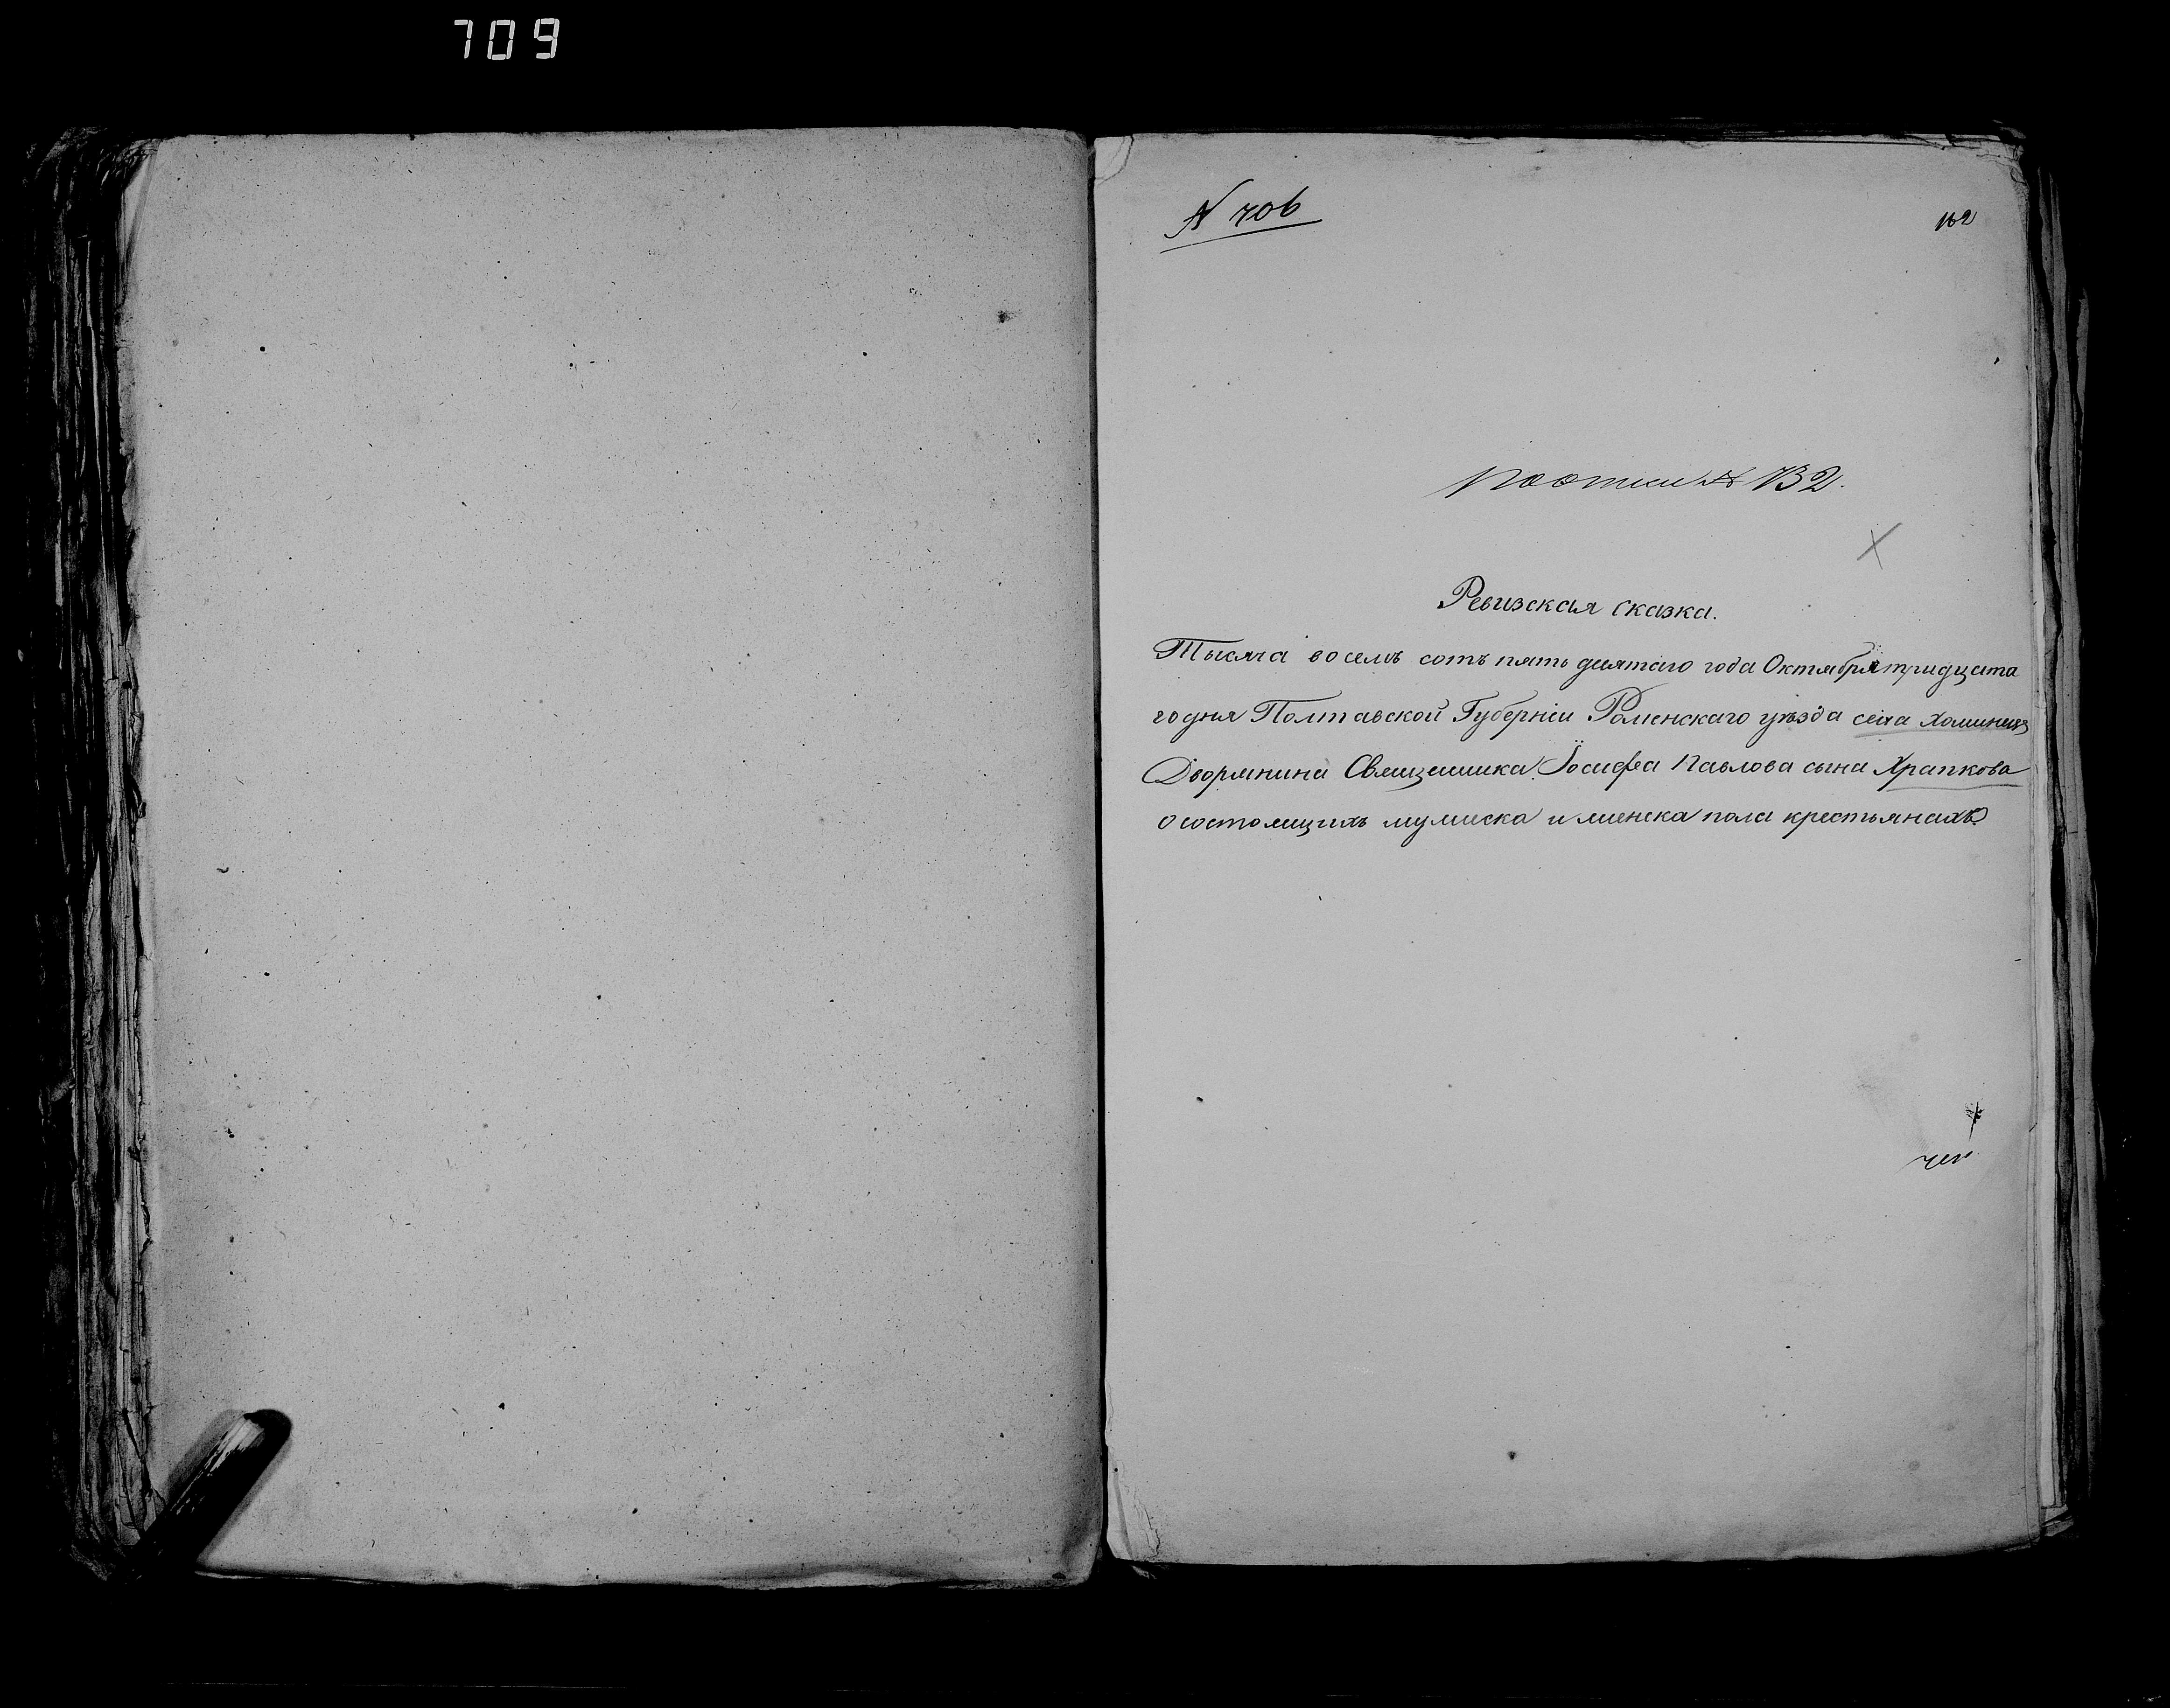 709
N 706
162
по отки № 732.
Ревизская сказка.
Тысяча восемь сотъ пять десятаго года Октября тридцата
го дня Полтавской Губерніи Роменскаго уѣзда села Хоминецъ
Дворянина Священника Іосифа Павлова сына Храпкова
о состоящихъ мужеска и женска пола крестьянахъ